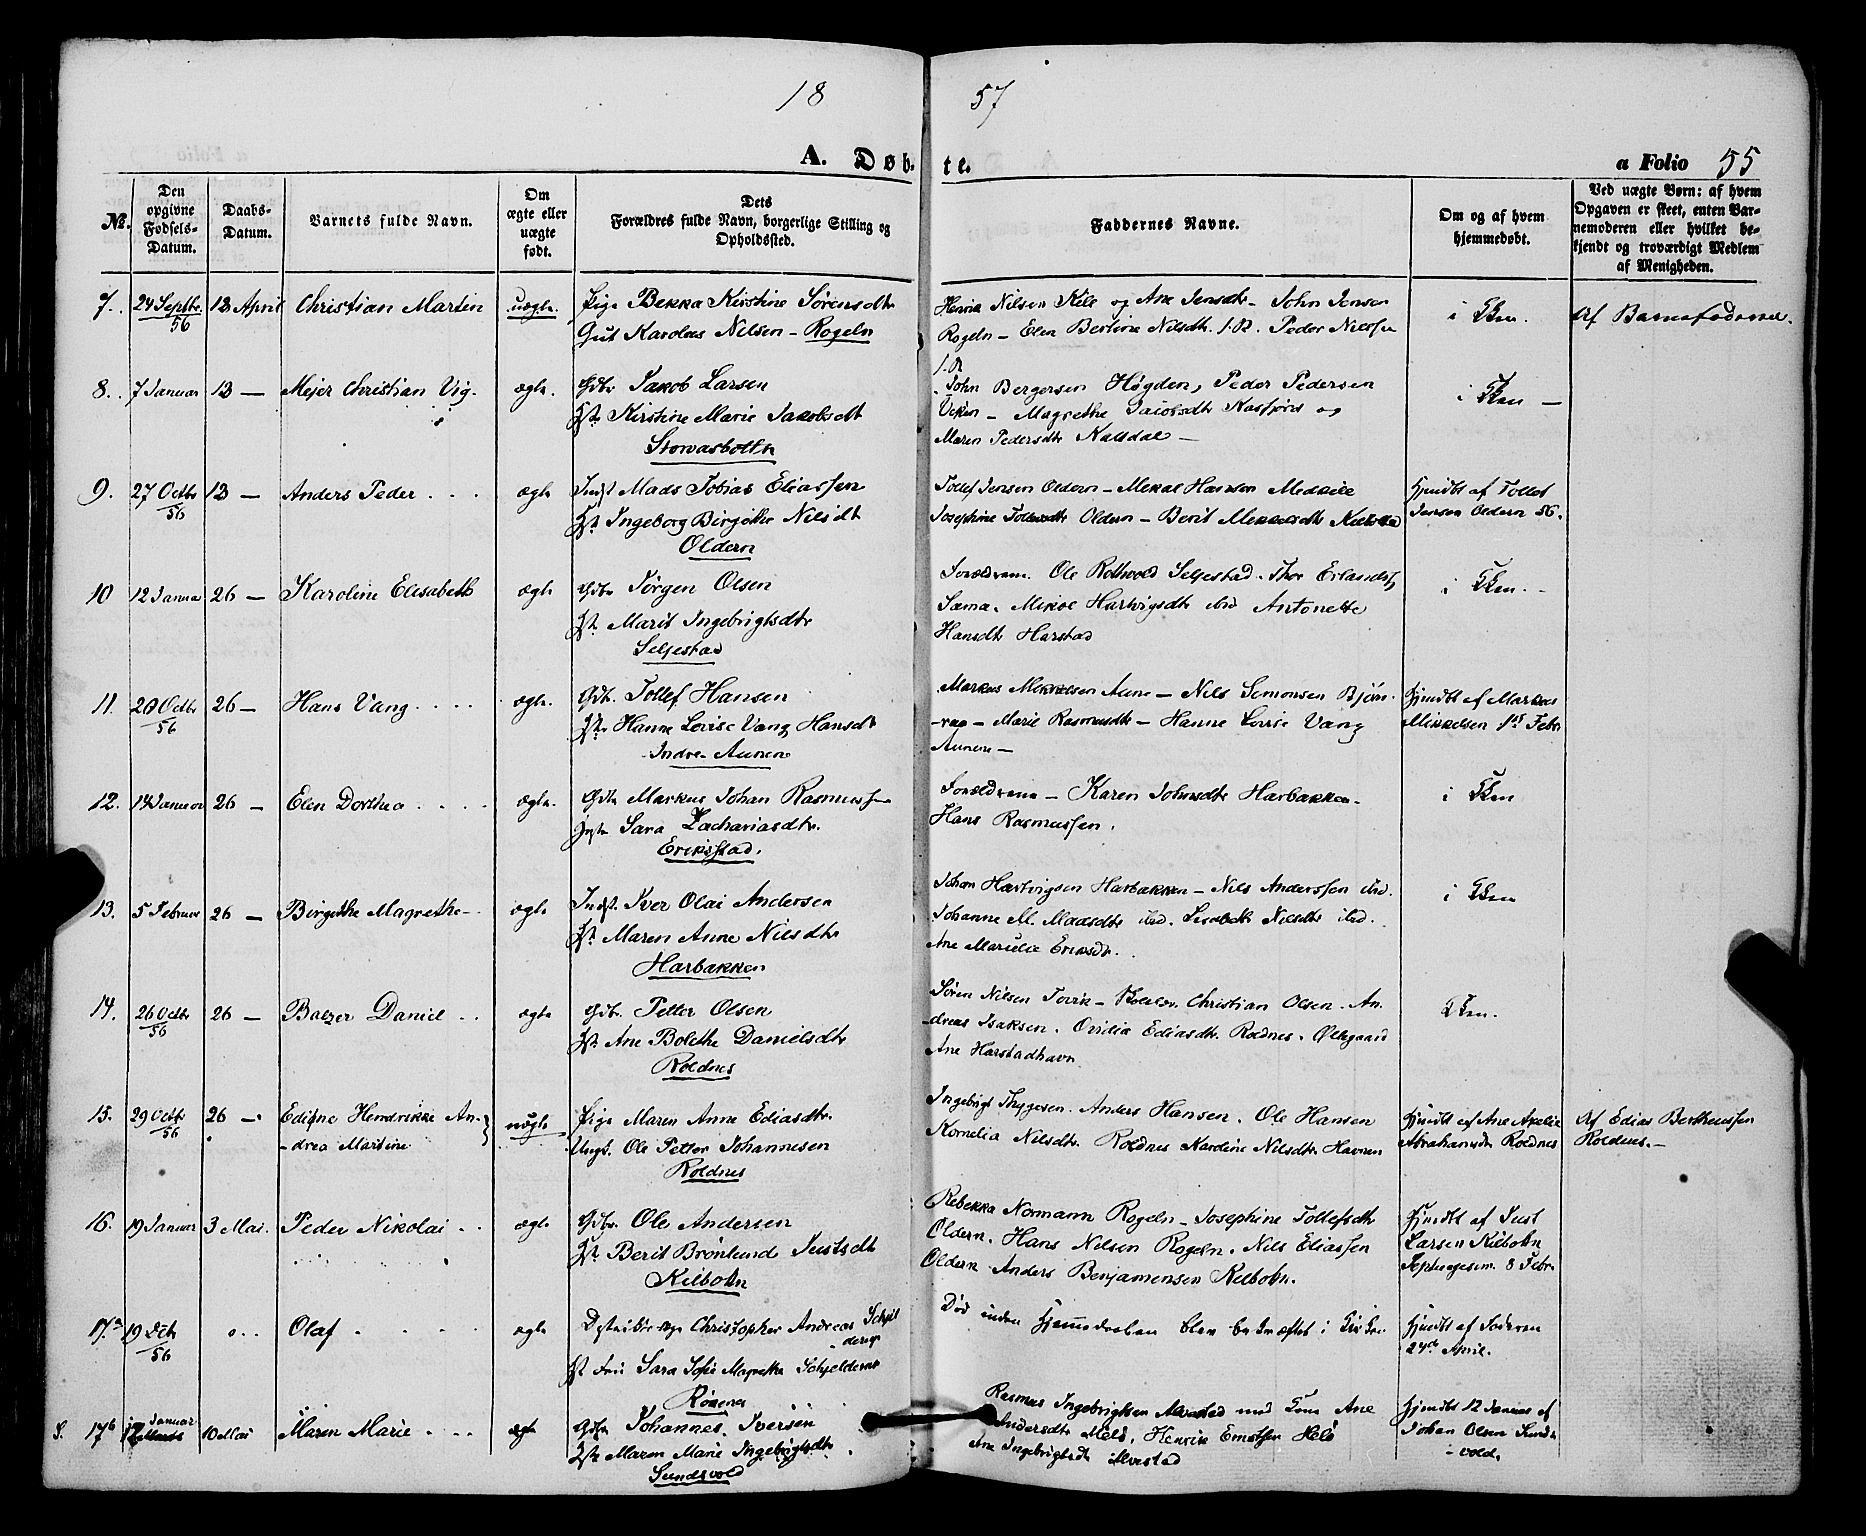 18 57
A. Døbte.
a Folio 55
№.
Den opgivne Fødsels-Datum.
Daabs-Datum.
Barnets fulde Navn.
Om ægte eller uægte født.
Dets
Forældres fulde Navn, borgerlige Stilling og
Opholdssted.
Faddernes Navne.
Om og af hvem
hjemmedøbt.
Ved uægte Børn: af hvem
Opgaven er skeet, enten Bar-
nemoderen eller hvilket be-
kjendt og troværdigt Medlem
af Menigheden.
7. 24 Septbr. 56 13 April Christian Martin uægte.
Pige Bekka Kirstine Sørensdtr
Gut Karolus Nilsen - Rogeln
Henrik Nilsen Kile og Ane Jensdtr - John Jensen
Rogeln - Elen Bertine Nilsdtr. Peder Nielsen
i Kken.
Af Barnefaderen.
8. 7 Januar 13 — Mejer Christian Vig. ægte.
Gdbr Jakob Larsen
Kirstine Marie Jakobsdt
Storvasbotn
John Bergersen Høgden, Peder Pedersen
Viken - Magrethe Jacobsdtr Kasfjord og
Maren Pedersdtr Kalsdal —
i Kken —
9. 27 Octbr 56 13 — Anders Peder ægte
Indst Mads Tobias Eliassen
Ingeborg Birgitte Nilsdt
Oldern
Tollef Jensen Oldern - Mekal Hansen Medkile
Josephine Tollefsdtr Oldern - Berit Mekkelsdtr
Hjmdbt af Tollef
Jensen Oldern 56.
10 12 Januar 26 — Karoline Elisabeth ægte
Gdbr Jørgen Olsen
Marit Ingebrigtsdtr
Seljestad
Forældrene. Ole Rothvold Seljestad. Thor Erlandsen
Sama. Mikal Hartvigsdtr ibid Antonette
Hansdtr Harstad
i Kken.
11. 28 Octbr 56 26 — Hans Vang ægte.
Gdbr. Tollef Hansen
Hanne Lovise Vang Hansdt
Indre-Aunen
Markus Mikkelsen Aune — Nils Simonsen Bjørn-
-raa - Marie Rasmusdtr - Hanne Lovise Vang
Aunene —
Hjmdbt af Markus
Mikkelsen Febr
12. 14 Januar 26 — Elen Dorthea ægte.
Gdbr Markus Johan Rasmussen
Sara Zachariasdtr.
Erikstad.
Forældrene - Karen Johnsdtr Harbakken -
Hans Rasmussen.
i Kken
13. 5 Februar 26 — Birgithe Magrethe ægte
Indst. Iver Olai Andersen
Maren Anne Nilsdtr
Harbakken
Johan Hartvigsen Harbakken - Nils Anderssen ibid.
Johanne M. Maasdtr ibid. Lisabeth Nilsdtr ibid.
Ane Marielie Eriksdtr.
i Kken
14. 26 Octbr 56 26 — Balzer Daniel ægte
Gdbr. Petter Olsen
Ane Bolethe Danielsdtr
Roldnes
Søren Nilsen Torvik - Christian Olsen. An-
-dreas Isaksen. Ovidia Ediasdtr. Roldnes. Oltegaard
Ane Harstadhavn
Kken.
15. 29 Octbr 56 26 — Edigne Hendrikke An-
-drea Martine uægte
Pige Maren Anne Ediasdtr.
Ungk. Ole Petter Johannesen
Roldnes
Ingebrigt Thygesen. Anders Hansen. Ole Hansen
Kornelia Nilsdtr. Roldnes Nardine Nilsdtr Havnen
Hjmdbt af Ane Axelie
Abrahamsdtr Roldnes
Af Edias Bertheussen
Roldnes. —
16. 19 Januar 3 Mai. Peder Nikolai ægte
Gdbr. Ole Andersen
Berit Brønlund Justsdt
Kilbotn
Rebekka Normann Rogeln - Josephine Tollefsdtr
Oldern. Hans Nilsen Rogeln. Nils Eliassen
Oldern Anders Benjaminsen Kilbotn.
Hjmdbt af Just
Larsen Kilbotn
Septuagesim. 8 Febr.
17.a 19 Dcbr 56 Olaf ægte
Distriktslæge Christopher Andreas Schjel
derup
Fru Sara Sofie Magrethe Schjelderup
Røkenes
Død inden Hjemmedaaben blev bekræftet i Kirken
Hjmdbt af Faderen
24de April.
S. 17b 12 Januar 10 Mai Maren Marie ægte
Gdbr Johannes Iversen
Maren Marie Ingebrigtsdtr
Sundsvold
Rasmus Ingebrigtsen Alvestad med Kone Ane
Andersdtr Mels. Henrik Enoksen Mels
Ane Ingebrigtsdt Alvestad
Hjmdbt 12 Januar af
Johan Olsen Sunds
vold.